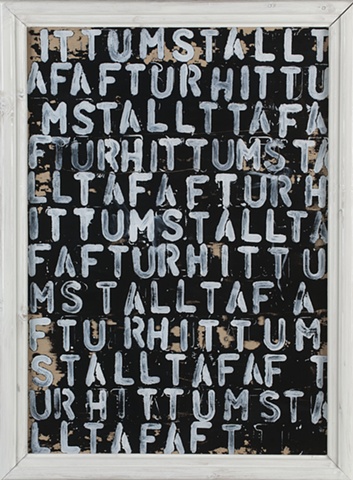 ITTUMSTALLT
AFAFTURHITTU
MSTALLTTAFA
FTURHITTUMSTA
LLTAFAFTURH
ITTUMSTALLTA
FAFTURHITTU
MSTALLTAFA
FTURHITTUM
STALLTAFAFT
URHITTUMSTA
LLTAFAFT